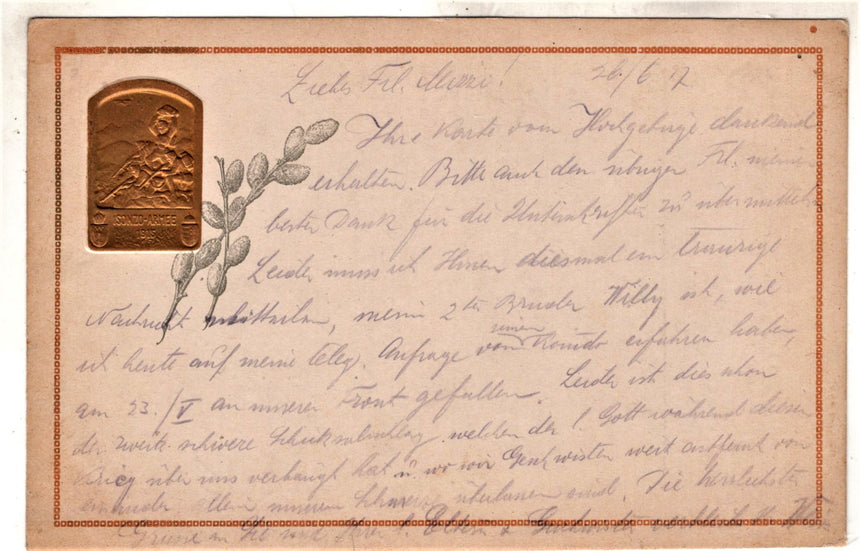 ISONZO-ARMEE
1915
Liebes Frl. Mizzi! 26/6 17
Ihre Karte vom Hochgebirge dankend
erhalten. Bitte auch den übrigen Frl. meinen
besten Dank für die Unterschriften zu übermitteln
Leider muss ich Ihnen diesmal ein traurige
Nachricht mitteilen, mein 2ter Bruder Willy ist, wie
ich heute auf meine teleg. Anfrage vom seinem Komdo erfahren habe,
am 23./V an unserer Front gefallen. Leider ist dies schon
der zweite schwere Schicksalsschlag welchen der l. Gott während diesen
Krieg über uns verhängt hat u. wo wir Geschwister weit entfernt von
einander allein unserem Schmerze überlassen sind. Die herzlichsten
Grüsse an Sie und Ihre l. Eltern & Geschwister